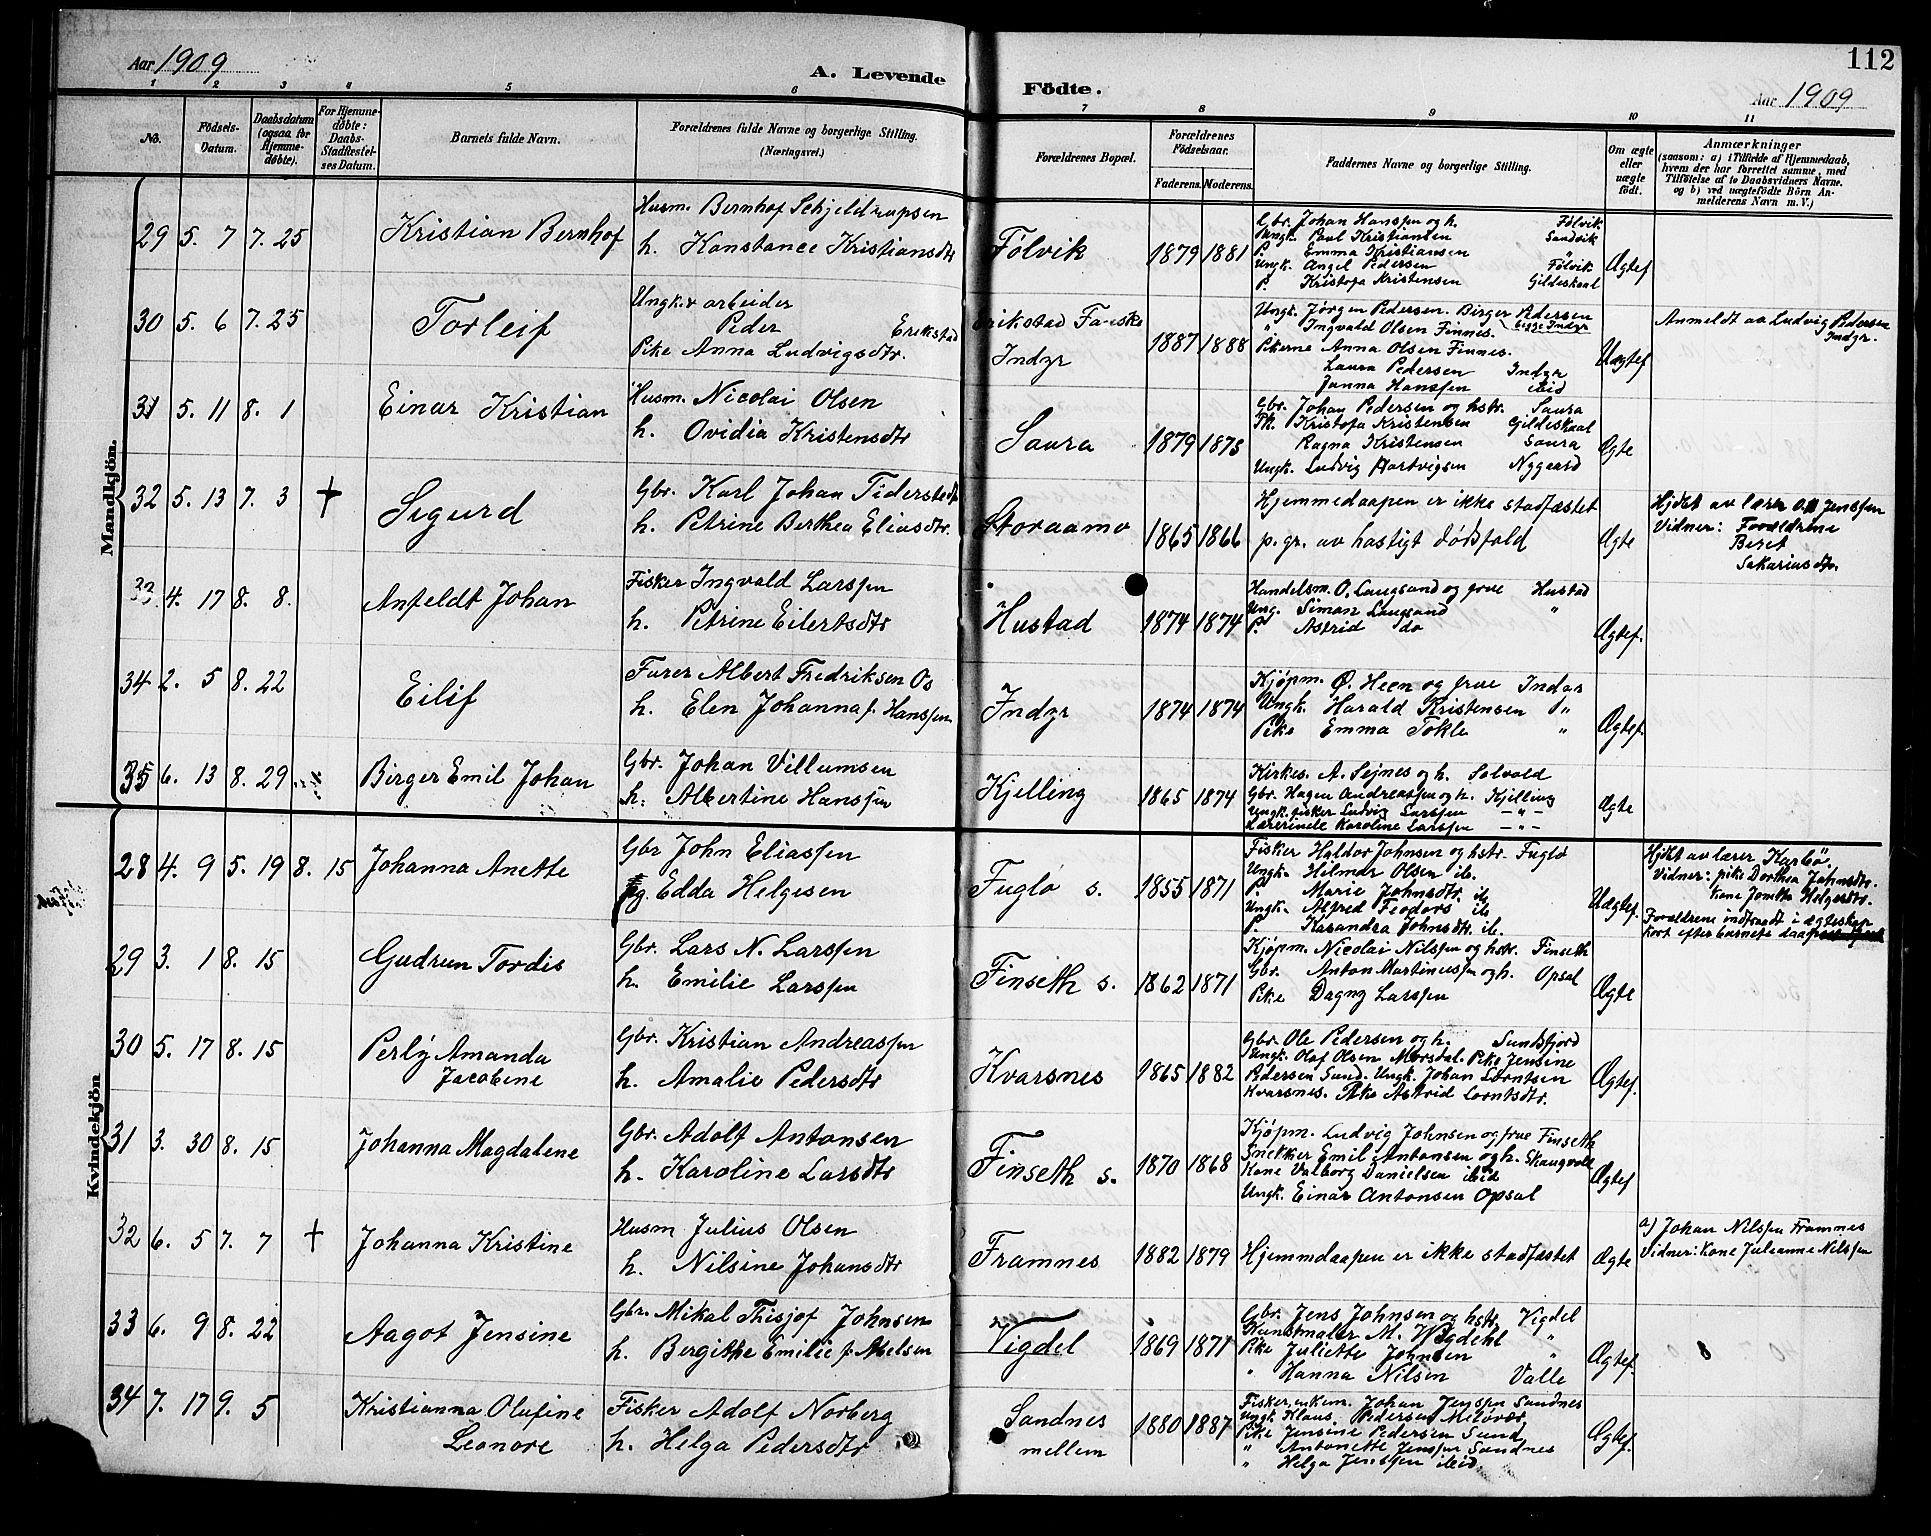 Aar 1909
A. Levende
Födte.
112
Aar 1909
1 2 3 4 5 6 7 8 9 10 11
No.
Födsels-Datum.
Daabsdatum (ogsaa for Hjemmedøbte).
For Hjemmedøbte: Daabs-Stadfæstelses Datum.
Barnets fulde Navn.
Forældrenes fulde Navne og borgerlige Stilling. (Næringsvei.)
Forældrenes Bopæl.
Forældrenes Födselsaar.
Faderens. Moderens.
Faddernes Navne og borgerlige Stilling.
Om ægte eller uægte født.
Anmærkninger
(saasom: a) i Tilfælde af Hjemmedaab,
hvem der har forrettet samme, med
Tilføielse af to Daabsvidners Navne.
og b) ved uægtefödte Börn An-
melderens Navn m. V.)
Mandkjön.
29 5. 7 7. 25 Kristian Bernhof
Husm. Bernhof Schjeldrupsen
h. Konstance Kristiansdtr
Følvik 1879 1881
Gbr. Johan Hanssen og h. Følvik
Ungk. Paul Kristiansen Sandvik
P. Emma Kristiansen "
Ungk. Angel Pedersen Følvik
P. Kristofa Kristensen Gildeskaal
Ægtef
30 5. 6 7. 25 Torleif
Ungk. arbeider
Peder Erikstad
Pike Anna Ludvigsdtr.
Erikstad Fauske
Indyr 1887 1888
Ungk. Jörgen Pedersen. Birger Pedersen
" Ingvald Olsen Finnes. begge Indyr
Pikerne Anna Olsen Finnes.
Laura Pedersen Indyr
Janna Hanssen ibid
Uægtef
Anmeldt av Ludvig Pedersen
Indyr.
31 5. 11 8. 1 Einar Kristian
Husm. Nicolai Olsen
h. Ovidia Kristensdtr
Saura 1879 1875
Gbr. Johan Pedersen og hstr. Saura
Pk. Kristofa Kristensen Gildeskaal
Ragna Kristensen Saura
Ungk. Ludvig Hartvigsen Nygaard
Ægte
32 5. 13 7. 3 + Sigurd
Gbr. Karl Johan
h. Petrine Berthea Eliasdtr.
Storaamo 1865 1866
Hjemmedaapen er ikke stadfæstet
p. gr. av hastigt dödsfald
Ægte
Hjdøt av lærer Jenssen
Vidner: Forældrene
Beret
Sakariasdtr.
33 4. 17 8. 8. Anfeldt Johan
Fisker Ingvald Larssen
h. Petrine Eilertsdtr
Hustad 1874 1874
Handelsm. O. Langsand og frue Hustad
Ung. Simon Langsand "
P. Astrid do
Ægtef.
34 2. 5 8. 22 Eilif
Furer Albert Fredriksen Os
h. Elen Johanna f. Hanssen
Indyr 1874 1874
Kjøpm. Ø. Heen og frue Indyr
Ungk. Harald Kristensen "
Pike Emma Tokle "
Ægtef.
35 6. 13 8. 29 Birger Emil Johan
Gbr. Johan Villumsen
h. Albertine Hanssen
Kjelling 1865 1874
Kirkes. A. Sejnes og h. Solvold
Gbr. Hagen Andreassen og h. Kjelling
Ungk. fisker Ludvig Larssen - " -
Lærerinde Karoline Larssen - " -
Ægte
Kvindekjön
28 4. 9 5. 19 8. 15 Johanna Anette
Gbr John Eliassen
g. Edda Helgesen
Fuglø s. 1855 1871
Fisker Haldor Johnsen og hstr. Fuglø
Ungk. Hilmar Olsen ib.
P. Marie Johnsdtr. ib
Ungk. Alfred Feodors ib
P. Kasandra Johnsdtr. ib.
Uægtef.
Hjdøt av lærer Karbö.
Vidner: pike Dorthea Johnsdtr.
Kone Jonetta Helgesdtr.
Forældrene indtraadt i ægteskap
kort efter barnets daap
29 3. 1 8. 15 Gudrun Tordis
Gbr. Lars N. Larssen
h. Emilie Larssen
Finseth s. 1862 1871
Kjøpm. Nicolai Nilssen og hstr. Finseth
Gbr. Anton Martinussen og h. Opsal
Pike Dagny Larssen
Ægte
30 5. 17 8. 15 Perly Amanda
Jacobine
Gbr. Kristian Andreassen
h. Amalie Pedersdtr
Kvarsnes 1865 1882
Gbr. Ole Pedersen og h. Sundsfjord
Ungk. Olaf Olsen Morsdal. Pike Jensine
Pedersen Sund. Ungk. Johan Lorntsen
Kvarsnes. Pike Astrid Lorntsdtr.
Ægtef.
31 3. 30 8. 15 Johanna Magdalene
Gbr. Adolf Antonsen
h. Karoline Larsdtr
Finseth s. 1870 1868
Kjøpm. Ludvig Johnsen og frue Finseth
Snekker Emil Antonsen og h. Skaugvoll
Kone Valborg Danielsen ibid
Ungk. Einar Antonsen Opsal
Ægtef
32 6. 5 7. 7 + Johanna Kristine
Husm Julius Olsen
h. Nilsine Johansdtr
Framnes 1882 1879
Hjemmdaapen er ikke stadfæstet
Ægte
a) Johan Nilssen Framnes
Vidner: Kone Julianne Nilssen
33 6. 9 8. 22 Aagot Jensine
Gbr. Mikal Thisjof Johnsen
h. Bergithe Emilie f. Abelsen
Vigdel 1869 1871
Gbr. Jens Johnsen og hstr. Vigdel
Kunstmaler M. Wigdehl "
Pike Juliette Johnsen "
" Hanna Nilsen Valle
Ægtef.
34 7. 17 9. 5 Kristianna Olufine
Leonore
Fisker Adolf Norberg
h. Helga Pedersdtr
Sandnes
mellem 1880 1887
Fisker, enkem. Johan Jenssen Sandnes
Ungk. Klaus Pedersen Meløvær
Pike Jensine Pedersen Sund
" Antonette Jenssen Sandnes
" Helga Jenssen ibid.
Ægtef.